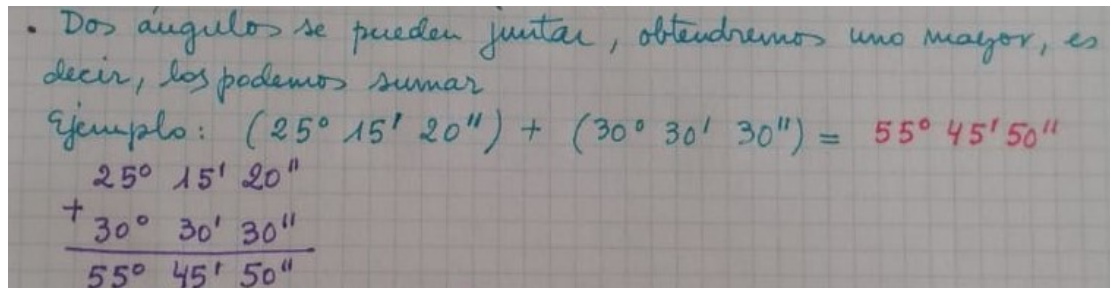 • Dos ángulos se pueden juntar, obtendremos uno mayor, es
decir, los podemos sumar
Ejemplo: (25° 15' 20'') + (30° 30' 30'') = 55° 45' 50''
25° 15' 20''
+ 30° 30' 30''
55° 45' 50''